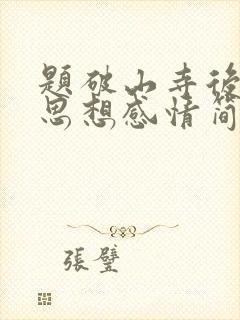 題破山寺後
思想感情简
張璧